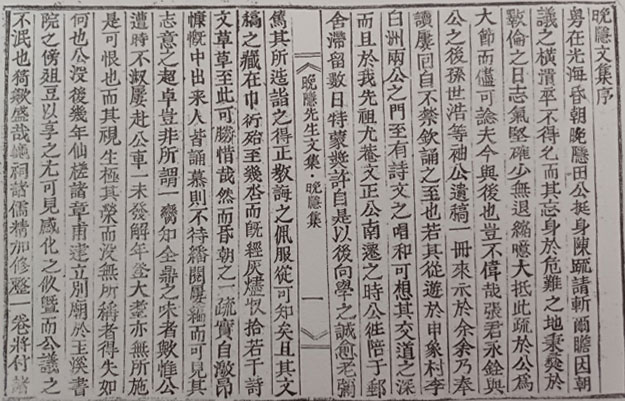 晩隱文集序
粤在光海昏朝晩隱田公挺身陳疏請斬爾瞻因朝
議之橫潰卒不得乞而其忘身於危難之地秉彛於
斁倫之日志氣堅確少無退縮噫大抵此疏於公爲
大節而儘可諗夫今與後也豈不偉哉張君永銓與
公之後孫世浩等袖公遺稿一冊來示於余余乃奉
讀屢回自不禁欽誦之至也若其從遊於申象村李
白洲兩公之門至有詩文之唱和可想其交道之深
而且於我先祖尤菴文正公南遷之時公徃陪于郵
舍滯留數日特蒙奬許自是以後向學之誠愈老彌
《晩隱先生文集·晩隱集》 一
篤其所造詣之得正敎誨之佩服從可知矣且其文
稿之藏在巾衍殆至幾沓而旣經灰燼收拾若干詩
文草草至此可勝惜哉然而昏朝之一疏實自激昂
慷慨中出來人皆誦慕則不待繙閱屢編而可見其
志意之超卓豈非所謂一臠知全鼎之味者歟惟公
遭時不淑屢赴公車一未發解年登大耋亦無所施
是可恨也而其視生極其榮而沒無所稱者得失如
何也公沒後幾年仙槎諸章甫建立別廟於玉溪書
院之傍俎豆以享之尤可見感化之攸曁而公議之
不泯也猗歟盛哉祠諸儒精加修整一卷將付諸